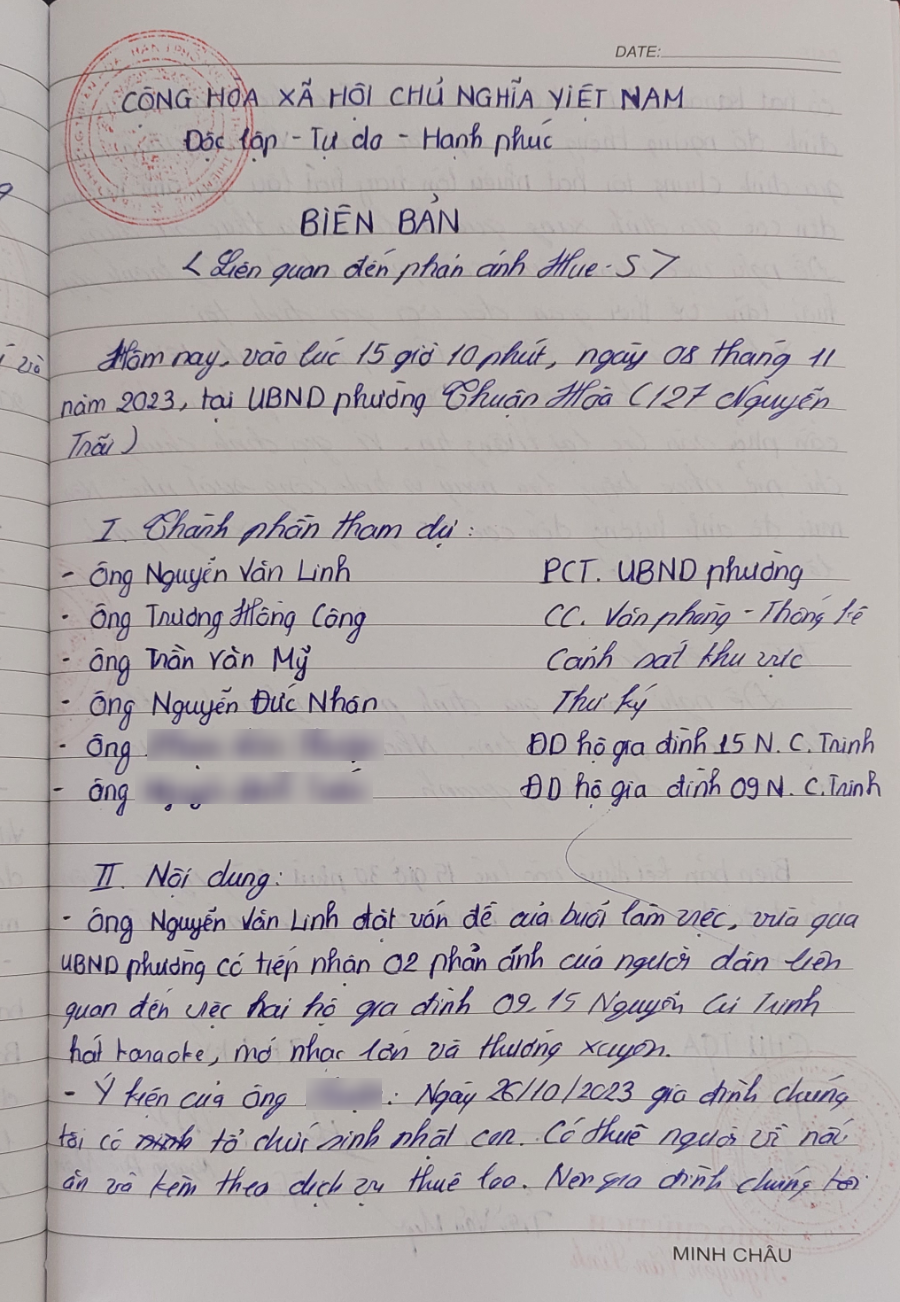 DATE:
CỘNG HÒA XÃ HỘI CHỦ NGHĨA VIỆT NAM
Độc lập - Tự do - Hạnh phúc
BIÊN BẢN
< Liên quan đến phản ánh Hue-S >
Hôm nay, vào lúc 15 giờ 10 phút, ngày 08 tháng 11
năm 2023, tại UBND phường Thuận Hòa (127 Nguyễn
Trãi)
I. Thành phần tham dự:
- Ông Nguyễn Văn Linh PCT. UBND phường
- Ông Trương Hồng Công CC. Văn phòng - Thống kê
- Ông Trần Văn Mỹ Cảnh sát khu vực
- Ông Nguyễn Đức Nhân Thư ký
- Ông ĐD hộ gia đình 15 N. C. Trinh
- Ông ĐD hộ gia đình 09 N. C. Trinh
II. Nội dung:
- Ông Nguyễn Văn Linh đặt vấn đề của buổi làm việc, vừa qua
UBND phường có tiếp nhận 02 phản ánh của người dân liên
quan đến việc hai hộ gia đình 09, 15 Nguyễn Cư Trinh
hát karaoke, mở nhạc lớn và thường xuyên.
- Ý kiến của ông : Ngày 26/10/2023 gia đình chúng
tôi có tổ chức sinh nhật con. Có thuê người về nấu
ăn và kèm theo dịch vụ thuê loa. Nên gia đình chúng tôi
MINH CHÂU